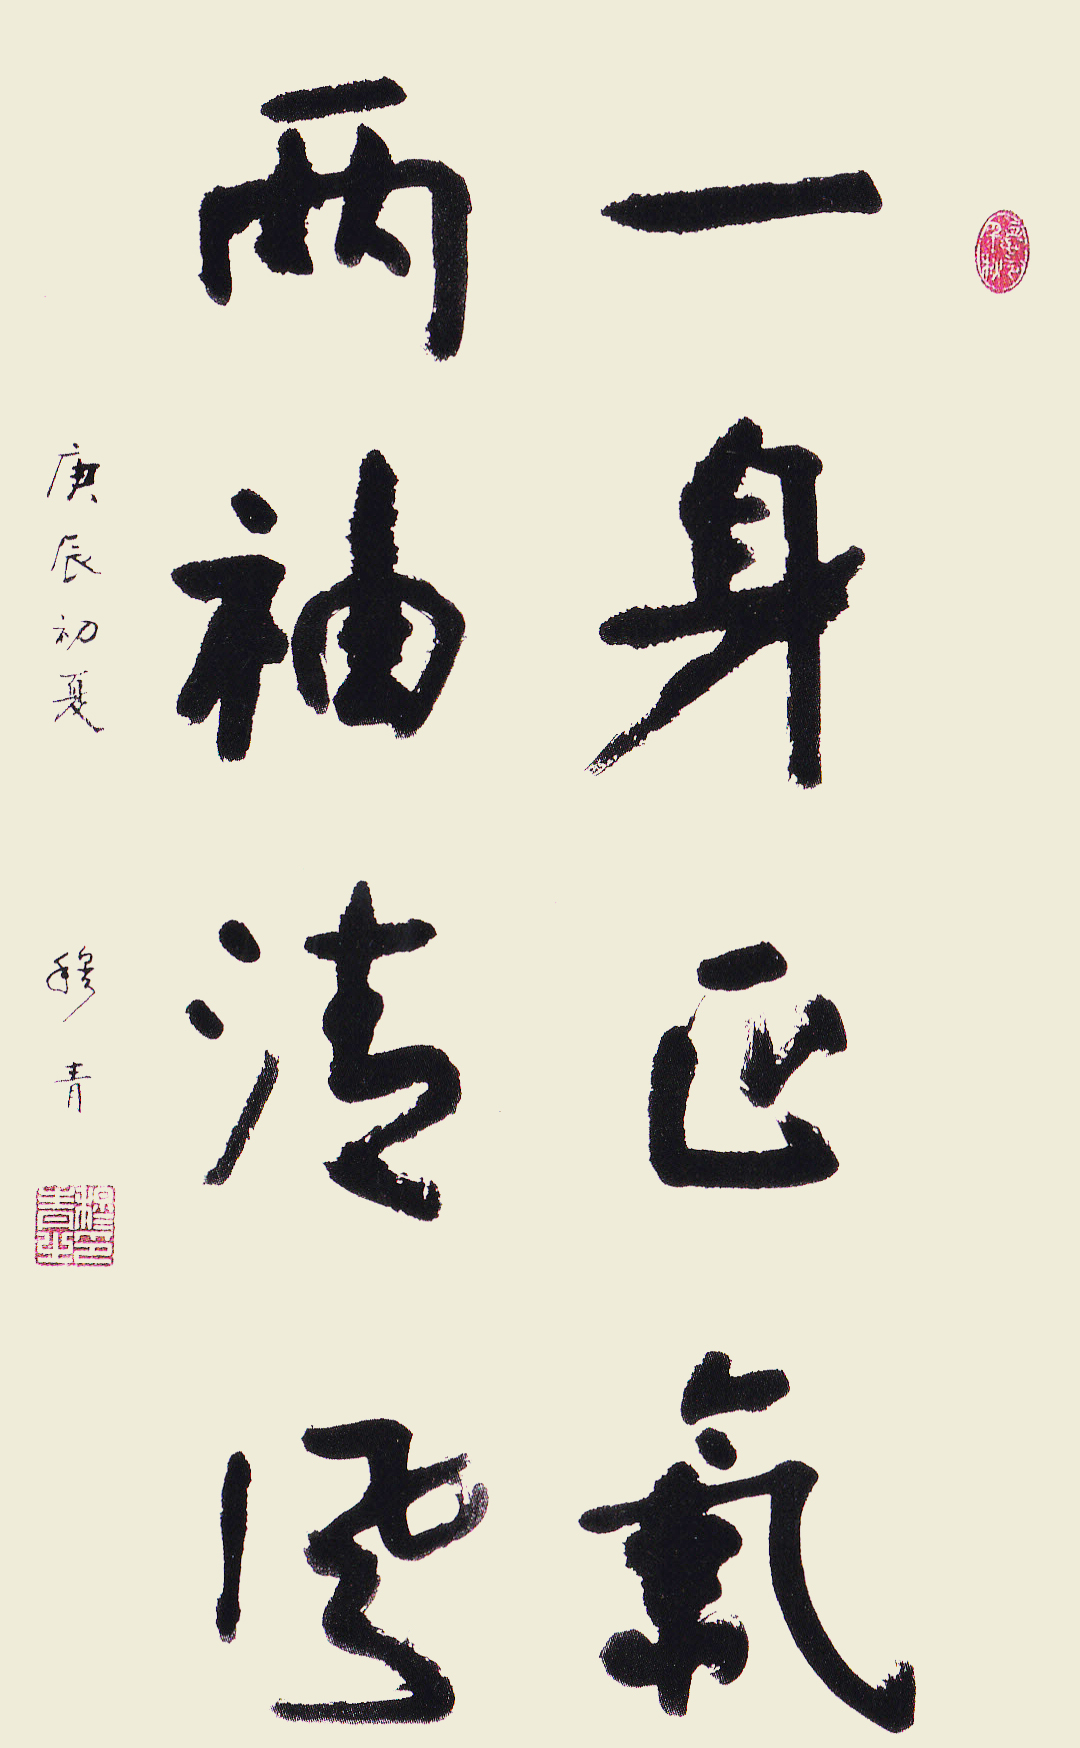 一身正氣
兩袖清風
庚辰初夏 穆青